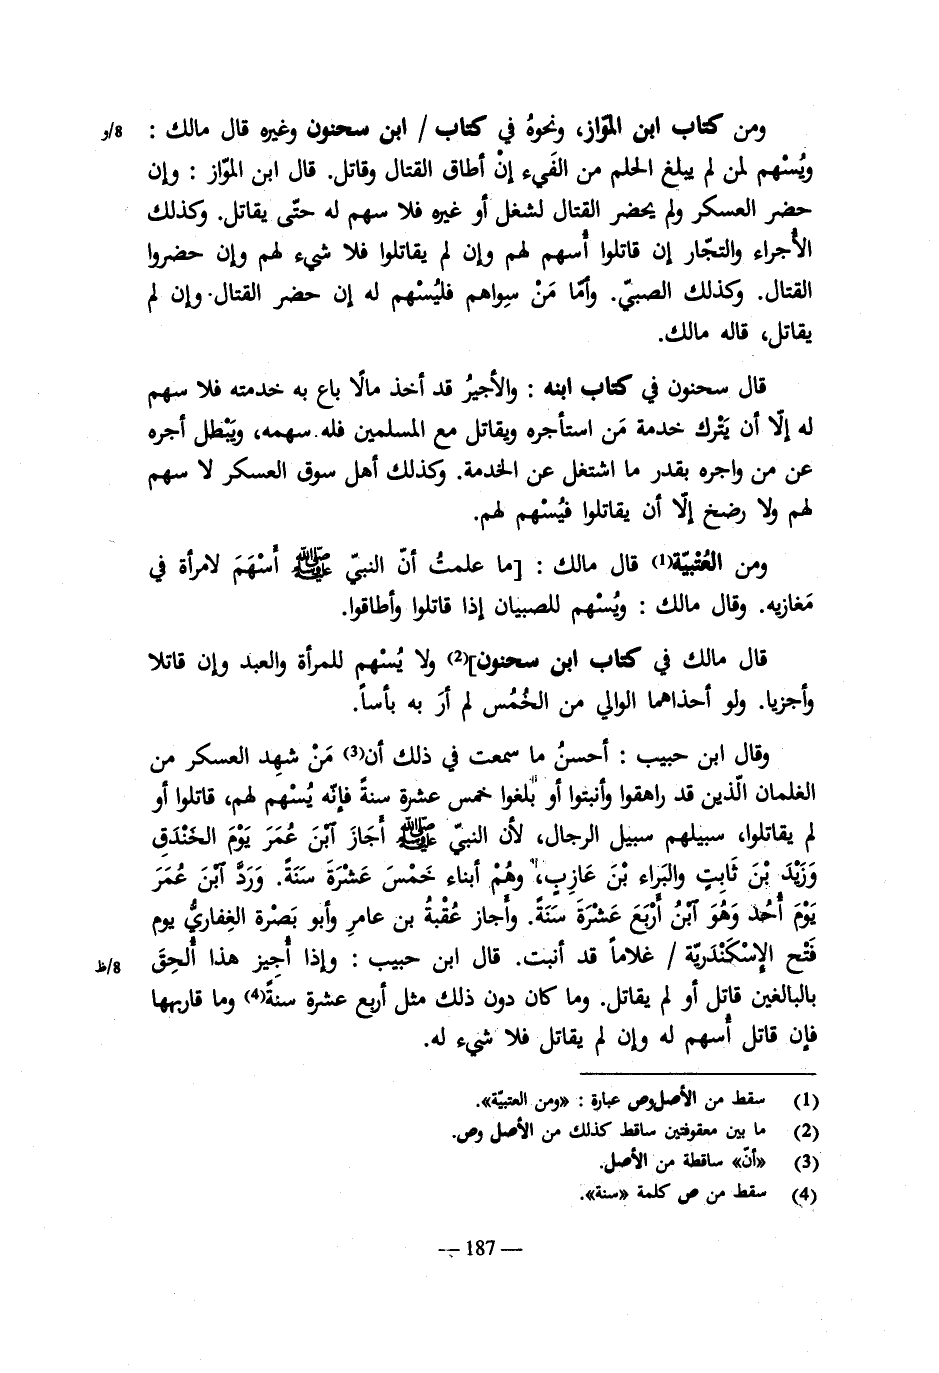 ومن كتاب ابن الموّاز، ونحوهُ في كتاب / ابن سحنون وغيره قال مالك : 8/و
ويُسْهم لمن لم يبلغ الحلم من الفَيء إنْ أطاق القتال وقاتل. قال ابن الموّاز : وإن
حضر العسكر ولم يحضر القتال لشغل أو غيره فلا سهم له حتّى يقاتل. وكذلك
الأُجراء والتجّار إن قاتلوا أُسهم لهم وإن لم يقاتلوا فلا شيء لهم وإن حضروا
القتال. وكذلك الصبيّ. وأمّا مَنْ سِواهم فليُسْهم له إن حضر القتال وإن لم
يقاتل، قاله مالك.
قال سحنون في كتاب ابنه : والأجيرُ قد أخذ مالًا باع به خدمته فلا سهم
له إلّا أن يَتْرك خدمة مَن استأجره ويقاتل مع المسلمين فله سهمه، ويَبْطل أجره
عن من واجره بقدر ما اشتغل عن الخدمة. وكذلك أهل سوق العسكر لا سهم
لهم ولا رضخ إلّا أن يقاتلوا فيُسْهم لهم.
ومن العُتْبيّة(1) قال مالك : [ما علمتُ أنّ النبيّ ﷺ أَسْهَمَ لامرأة في
مَغازيه. وقال مالك : ويُسْهم للصبيان إذا قاتلوا وأطاقوا.
قال مالك في كتاب ابن سحنون](2) ولا يُسْهم للمرأة والعبد وإن قاتلا
وأجزيا. ولو أحذاهما الوالي من الخُمُس لم أرَ به بأساً.
وقال ابن حبيب : أحسنُ ما سمعت في ذلك أن(3) مَنْ شهِد العسكر من
الغلمان الّذين قد راهقوا وأنبتوا أو بلغوا خمس عشرة سنةً فإنّه يُسْهم لهم، قاتلوا أو
لم يقاتلوا، سبيلهم سبيل الرجال، لأن النبيّ ﷺ أَجَازَ اَبْنَ عُمَرَ يَوْمَ الخَنْدَقِ
وَزَيْدَ بْنَ ثَابِتٍ والبَراء بْنَ عَازِبٍ، وهُمْ أبناء خَمْسَ عَشْرَةَ سَنَةً. وَرَدَّ اَبْنَ عُمَرَ
يَوْمَ أُحُد وَهُوَ اَبْنُ أَرْبَعَ عَشْرَةَ سَنَةً. وأَجاز عُقْبةُ بن عامرٍ وأبو بَصْرة الغِفاريُّ يوم
فَتْح الإسْكَنْدَريّة / غلاماً قد أنبت. قال ابن حبيب : وإذا أُجيز هذا أُلحِقَ 8/ظ
بالبالغين قاتل أو لم يقاتل. وما كان دون ذلك مثل أربع عشرة سنةً(4) وما قاربها
فإن قاتل أُسهم له وإن لم يقاتل فلا شيء له.
(1) سقط من الأصل وص عبارة : «ومن العتبيّة».
(2) ما بين معقوفتين ساقط كذلك من الأصل وص.
(3) «أنّ» ساقطة من الأصل.
(4) سقط من ص كلمة «سنة».
— 187 —